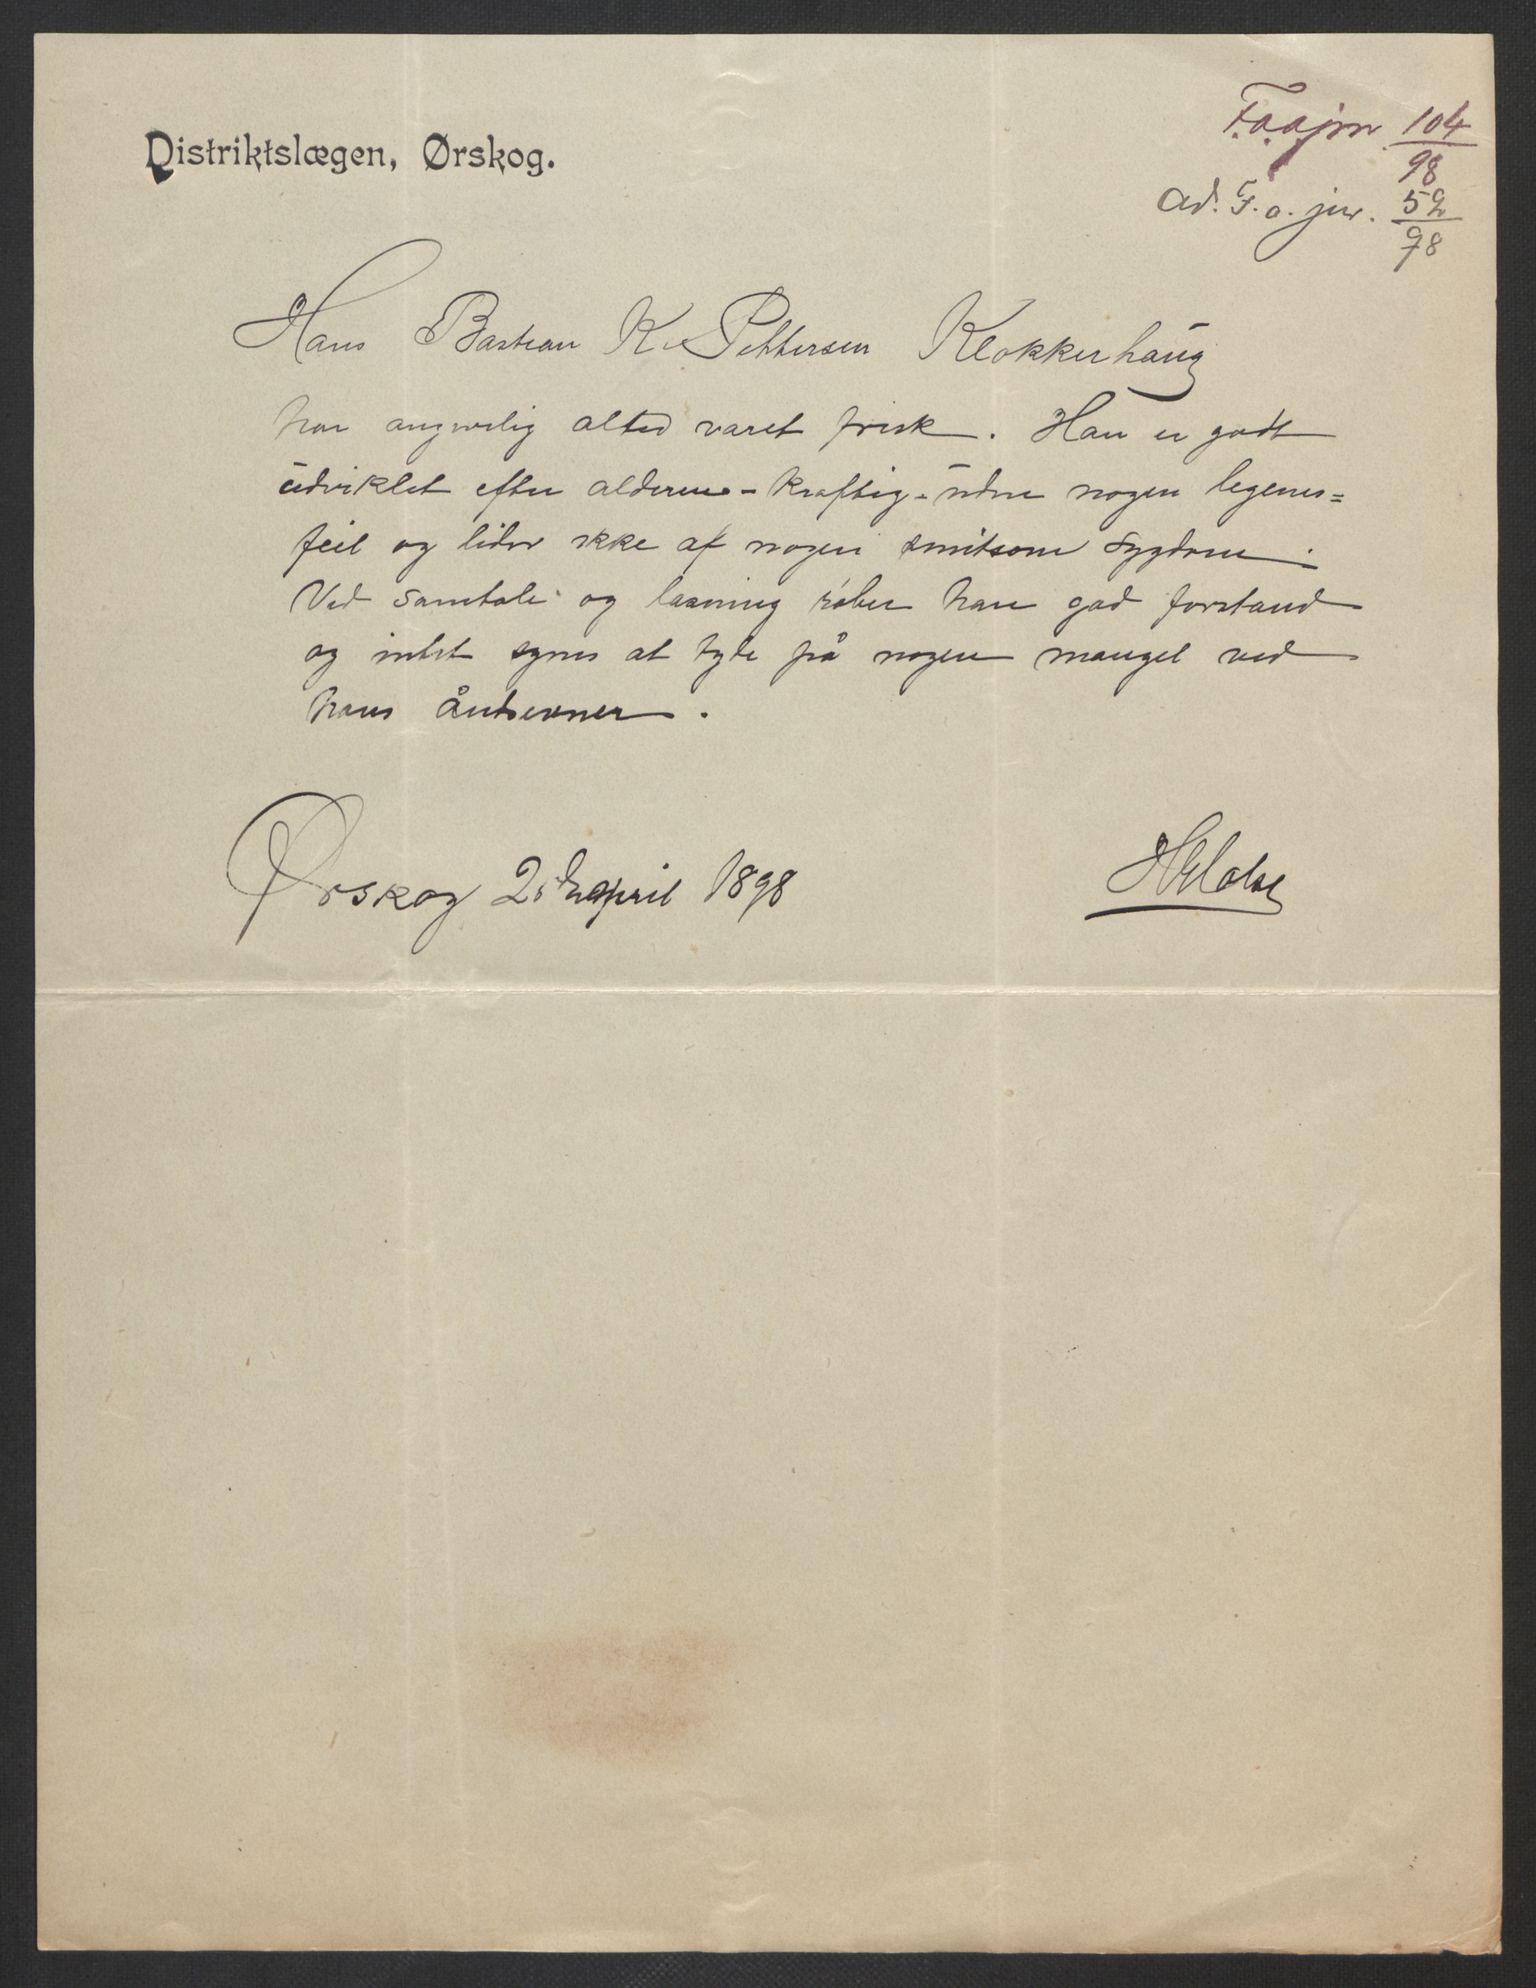 Distriktslægen, Ørskog.
F.a.a.jnr. 104/98
ad. F.a. jnr. 52/98
Hans Bastian K. Pettersen Klokkerhaug
har angivelig altid været frisk. Han er godt
udviklet efter alderen - kraftig - uden nogen legems=
feil og lider ikke af nogen smitsom sygdom.
Ved samtale og læsning røber han god forstand
og intet synes at tyde på nogen mangel ved
hans åndsevner.
Ørskog april 1898